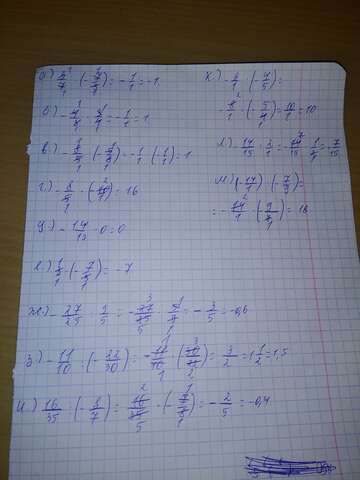 а) 5/7 · (-7/5) = -1/1 = -1
б) -4/5 · 5/4 = -1/1 = 1
в) -8/5 · (-5/8) = -1/1 · (1/1) = 1
г) -8/5 · (-10/1) = 16
д) -14/13 · 0 = 0
е) 1/1 · (-7/1) = -7
ж) -27/25 : 9/5 = -27/25 · 5/9 = -3/5 = -0,6
з) -11/10 : (-22/30) = -11/10 · (30/22) = 3/2 = 1 1/2 = 1,5
и) 16/35 : (-8/7) = 16/35 · (-7/8) = -2/5 = -0,4
к) -8/1 : (-4/5) =
-8/1 · (-5/4) = 10/1 = 10
л) -14/15 : 2/1 = -14/15 · 1/2 = 7/15
м) (-14/1) : (-7/9) =
= -14/1 · (-9/7) = 18